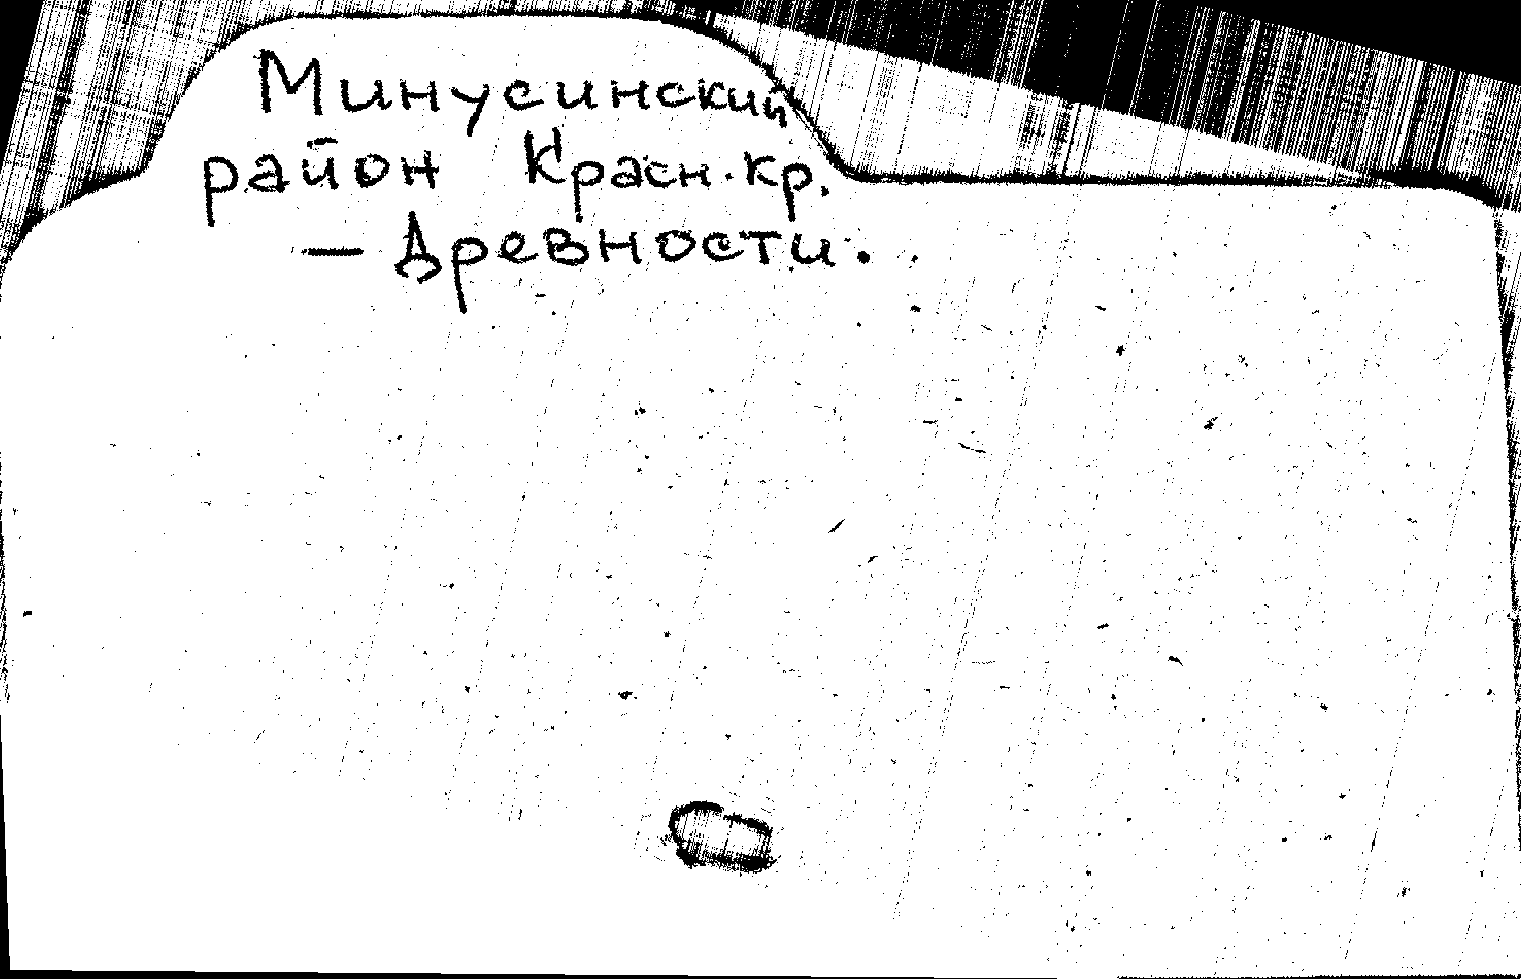 Минусинский
район Красн. кр.
— Древности.